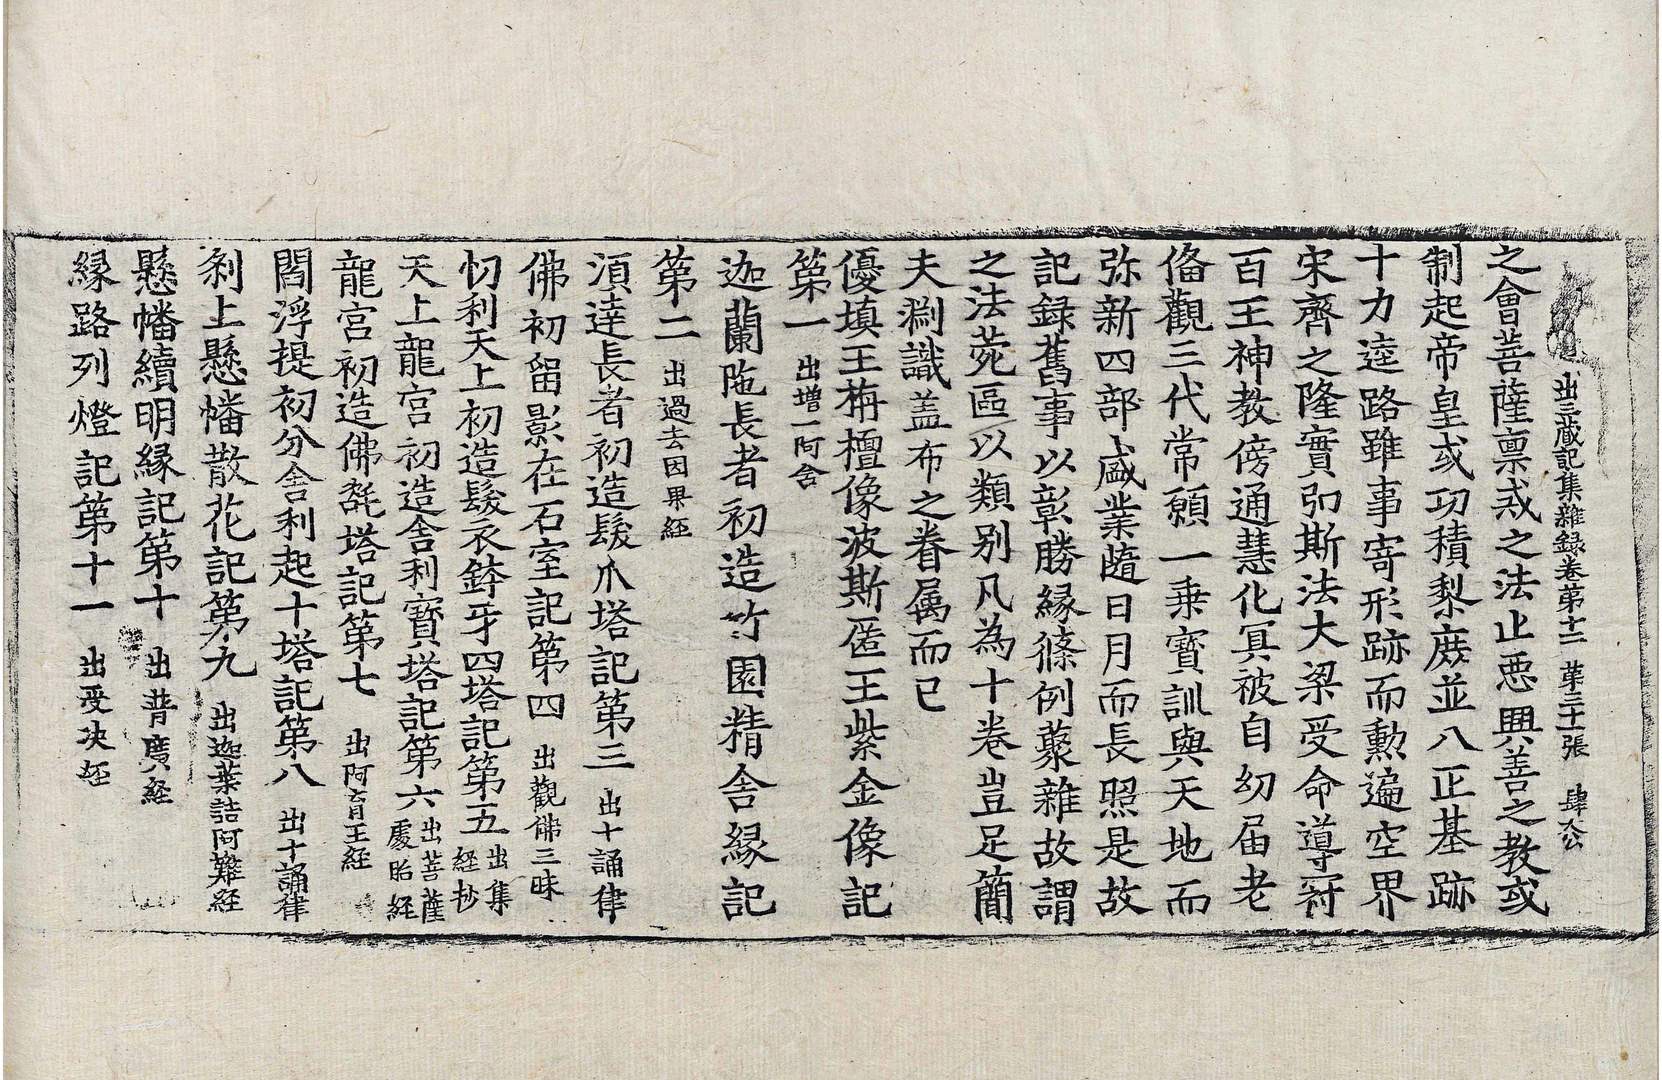 出三藏記集雜録卷第十二 第三十張 肆公
之會菩薩稟戒之法止惡興善之教或
制起帝皇或功積黎庶並八正基跡
十力逵路雖事寄形跡而勲遍空界
宋齊之隆實弘斯法大梁受命導冠
百王神教傍通慧化冥被自幼届老
俻觀三代常願一乗寳訓與天地而
弥新四部盛業隨日月而長照是故
記録舊事以彰勝縁條例藂雜故謂
之法菀區以類别凡為十卷豈足簡
夫淵識盖布之眷属而已
優填王栴檀像波斯匿王紫金像記
第一 出增一阿含
迦蘭陁長者初造竹園精舍縁記
第二 出過去因果経
湏達長者初造髮爪塔記第三 出十誦律
佛初留影在石室記第四 出觀佛三昧
忉利天上初造髮衣鉢牙四塔記第五 出集経抄
天上龍宫初造舎利寳塔記第六 出菩薩處胎経
龍宫初造佛髭塔記第七 出阿育王経
閻浮提初分舎利起十塔記第八 出十誦律
刹上懸幡散花記第九 出迦葉詰阿難経
懸幡續明縁記第十 出普廣経
縁路列燈記第十一 出受决経